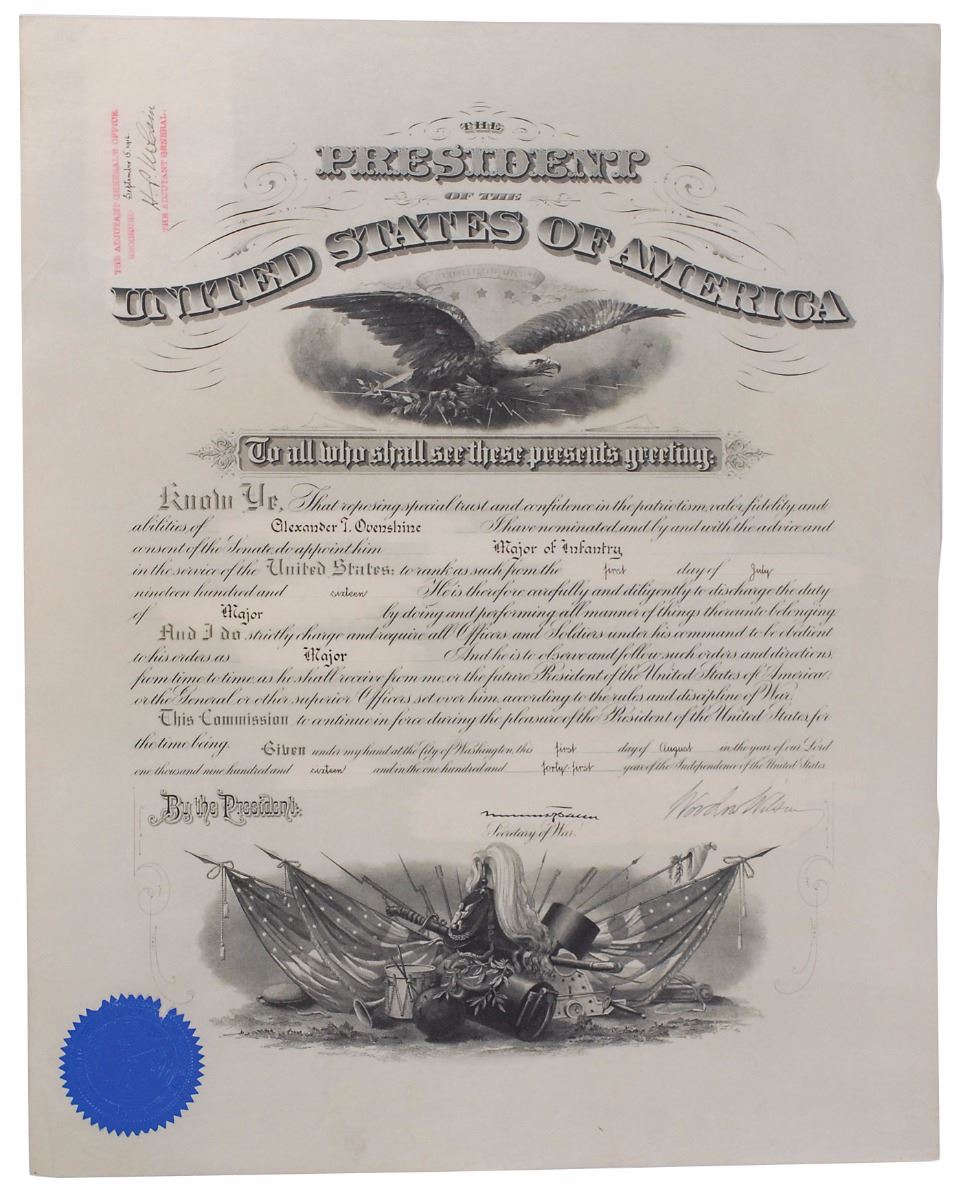 THE ADJUTANT GENERAL'S OFFICE
RECORDED September 15 1916
THE ADJUTANT GENERAL.
THE
PRESIDENT
OF THE
UNITED STATES OF AMERICA
To all who shall see these presents greeting:
Know Ye, That reposing special trust and confidence in the patriotism, valor, fidelity and
abilities of Alexander T. Ovenshine I have nominated and by and with the advice and
consent of the Senate do appoint him Major of Infantry
in the service of the United States: to rank as such from the first day of July
nineteen hundred and sixteen He is therefore carefully and diligently to discharge the duty
of Major by doing and performing all manner of things thereunto belonging
And I do strictly charge and require all Officers and Soldiers under his command to be obedient
to his orders as Major And he is to observe and follow such orders and directions,
from time to time, as he shall receive from me, or the future President of the United States of America,
or the General or other superior Officers set over him, according to the rules and discipline of War.
This Commission to continue in force during the pleasure of the President of the United States for
the time being. Given under my hand at the City of Washington, this first day of August in the year of our Lord
one thousand nine hundred and sixteen and in the one hundred and forty-first year of the Independence of the United States
By the President: Woodrow Wilson
Secretary of War.